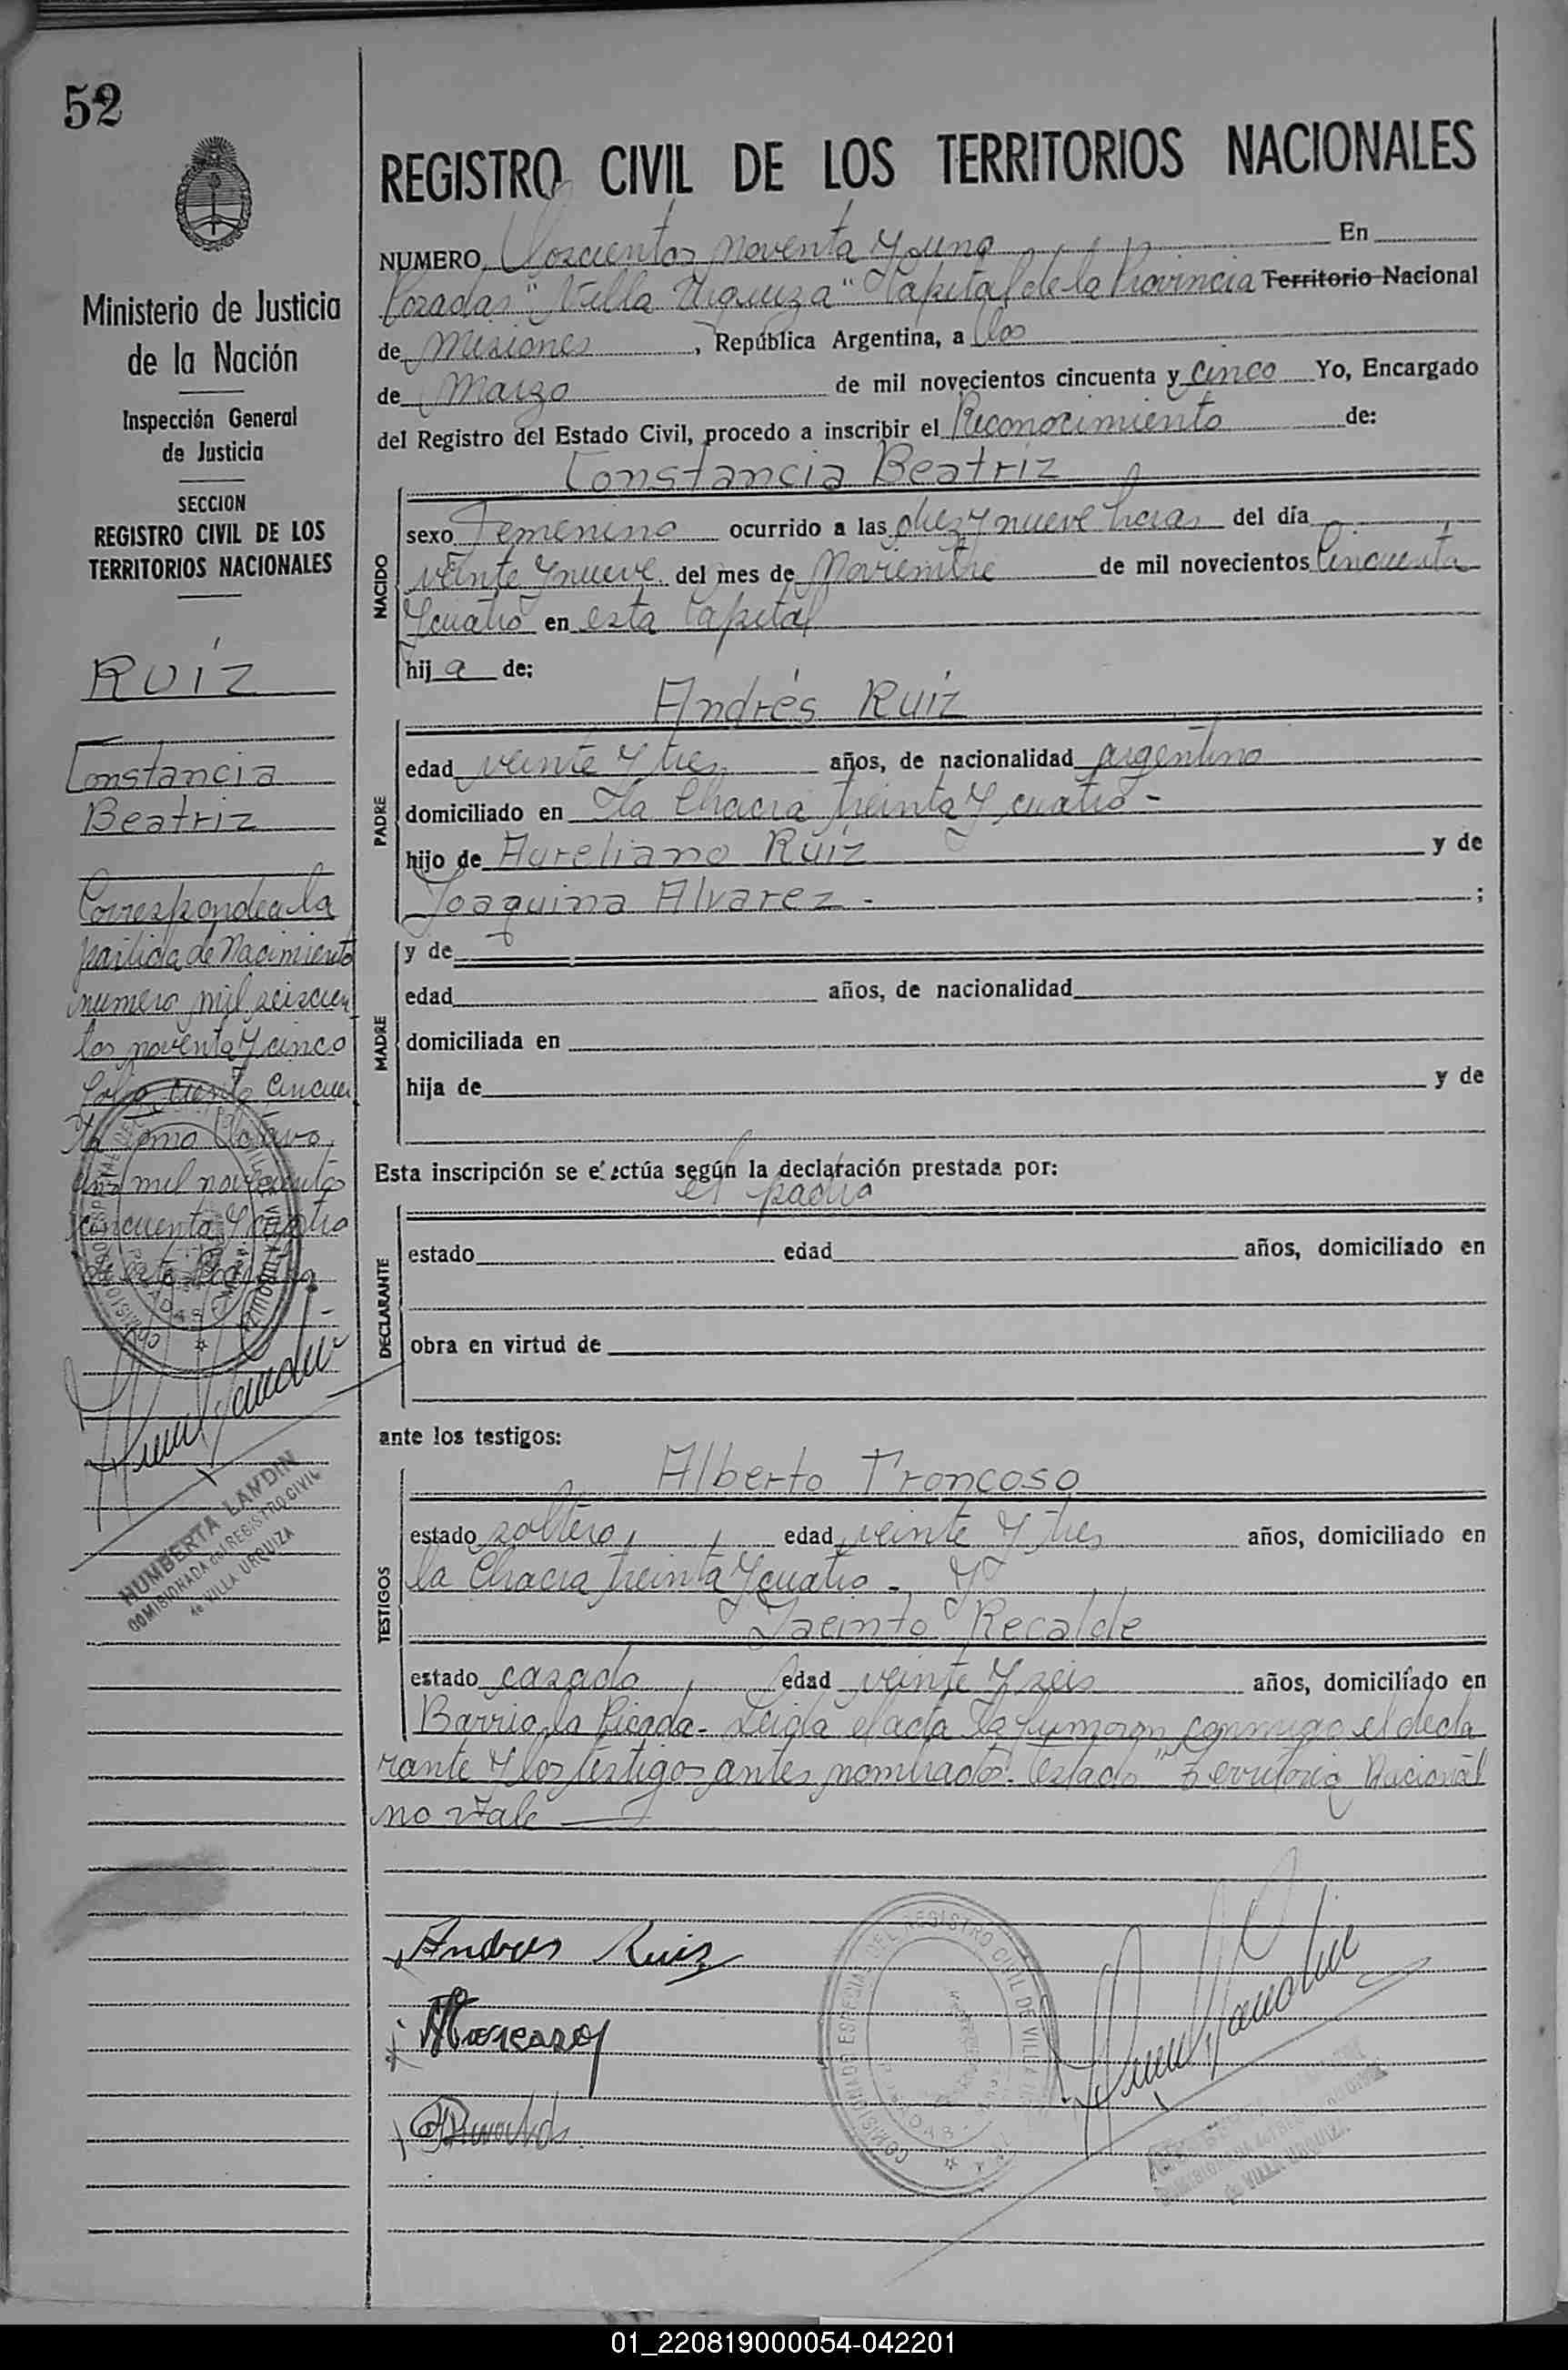 52
Ministerio de Justicia
de la Nación
Inspección General
de Justicia
SECCION
REGISTRO CIVIL DE LOS
TERRITORIOS NACIONALES
RUÍZ
Constancia
Beatriz
Corresponde a la
partida de Nacimiento
numero mil seiscien
tos noventa y cinco
folio ciento cincuen
ta tomo Octavo
año mil novecientos
cincuenta y cuatro
HUMBERTA LANDIN
COMISIONADA del REGISTRO CIVIL
de VILLA URQUIZA
REGISTRO CIVIL DE LOS TERRITORIOS NACIONALES
NUMERO Doscientos noventa y uno En
Posadas "Villa Urquiza" Capital de la Provincia Territorio Nacional
de Misiones, República Argentina, a dos
de Marzo de mil novecientos cincuenta y cinco Yo, Encargado
del Registro del Estado Civil, procedo a inscribir el Reconocimiento de:
Constancia Beatriz
NACIDO
sexo Femenino ocurrido a las diez y nueve horas del día
veinte y nueve del mes de Noviembre de mil novecientos Cincuenta
y cuatro en esta Capital
hija de:
Andrés Ruíz
PADRE
edad veinte y tres años, de nacionalidad argentino
domiciliado en la Chacra treinta y cuatro -
hijo de Aureliano Ruíz y de
Joaquina Alvarez - ;
MADRE
y de
edad años, de nacionalidad
domiciliada en
hija de y de
Esta inscripción se efectúa según la declaración prestada por:
el padre
DECLARANTE
estado edad años, domiciliado en
obra en virtud de
ante los testigos:
Alberto Troncoso
TESTIGOS
estado soltero, edad veinte y tres años, domiciliado en
la Chacra treinta y cuatro - y
Jacinto Recalde
estado casado, edad veinte y seis años, domiciliado en
Barrio la Picada - Leída el acta la firmaron conmigo el decla
rante y los testigos antes nombrados. testado "Territorio Nacional
no vale
Andres Ruiz
COMISIONADO ESPECIAL DEL REGISTRO CIVIL DE VILLA
POSADAS
01_220819000054-042201